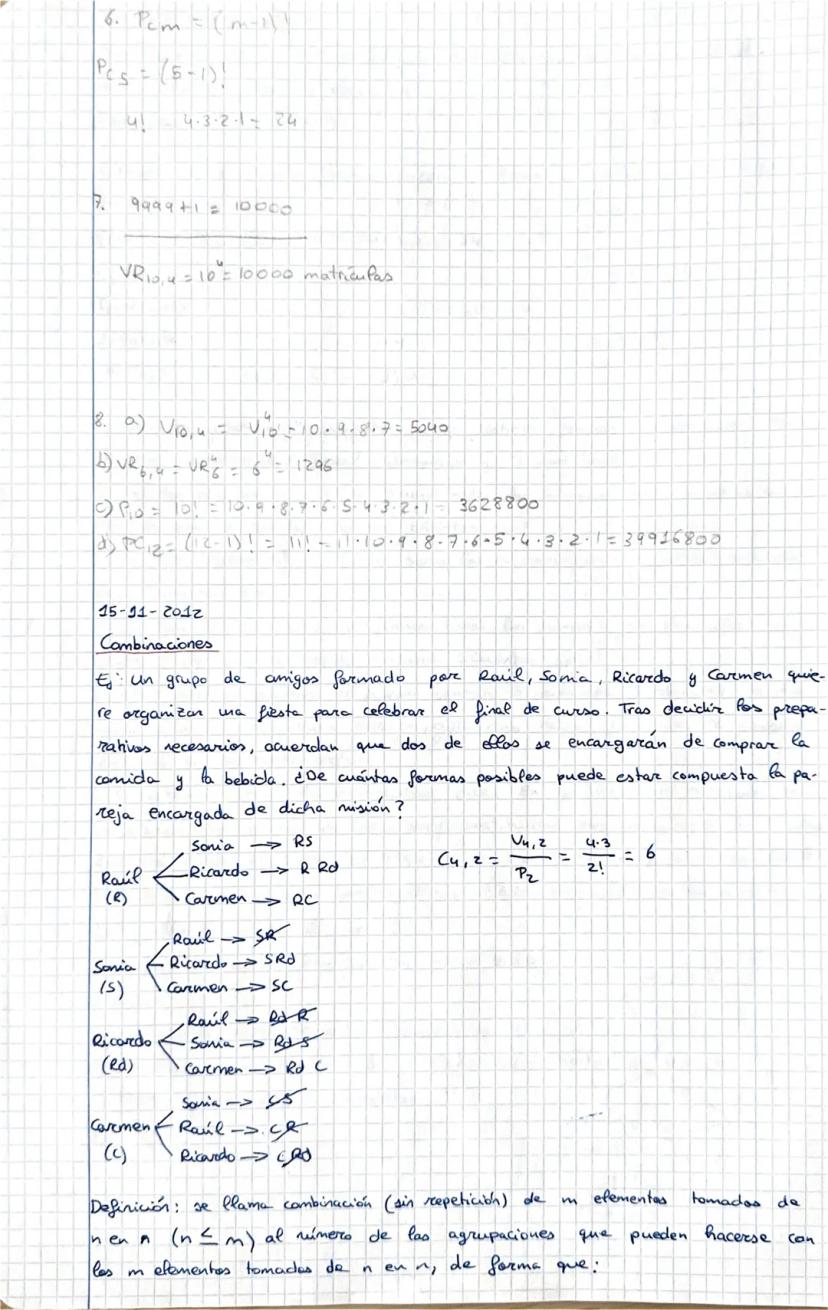 6. Pcm = (m-1)!
Pc5 = (5-1)!
4! 4·3·2·1 = 24
7. 9999+1 = 10000
VR10,4 = 10⁴ = 10000 matrículas
8. a) V10,4 = V₁₀⁴ = 10·9·8·7 = 5040
b) VR6,4 = VR₆⁴ = 6⁴ = 1296
c) P10 = 10! = 10·9·8·7·6·5·4·3·2·1 = 3628800
d) PC12 = (12-1)! = 11! = 11·10·9·8·7·6·5·4·3·2·1 = 39916800
15-11-2012
Combinaciones
Ej: Un grupo de amigos formado por Raúl, Sonia, Ricardo y Carmen quie-
re organizar una fiesta para celebrar el final de curso. Tras decidir los prepa-
rativos necesarios, acuerdan que dos de ellos se encargarán de comprar la
comida y la bebida. ¿De cuántas formas posibles puede estar compuesta la pa-
reja encargada de dicha misión?
Raúl (R)
Sonia → RS
Ricardo → R Rd
Carmen → RC
C4,2 = V4,2/P2 = 4·3/2! = 6
Sonia (S)
Raúl → SR
Ricardo → SRd
Carmen → SC
Ricardo (Rd)
Raúl → Rd R
Sonia → Rd S
Carmen → Rd C
Carmen (C)
Sonia → CS
Raúl → CR
Ricardo → CRd
Definición: se llama combinación (sin repetición) de m elementos tomados de
n en n (n ≤ m) al número de las agrupaciones que pueden hacerse con
los m elementos tomados de n en n, de forma que: